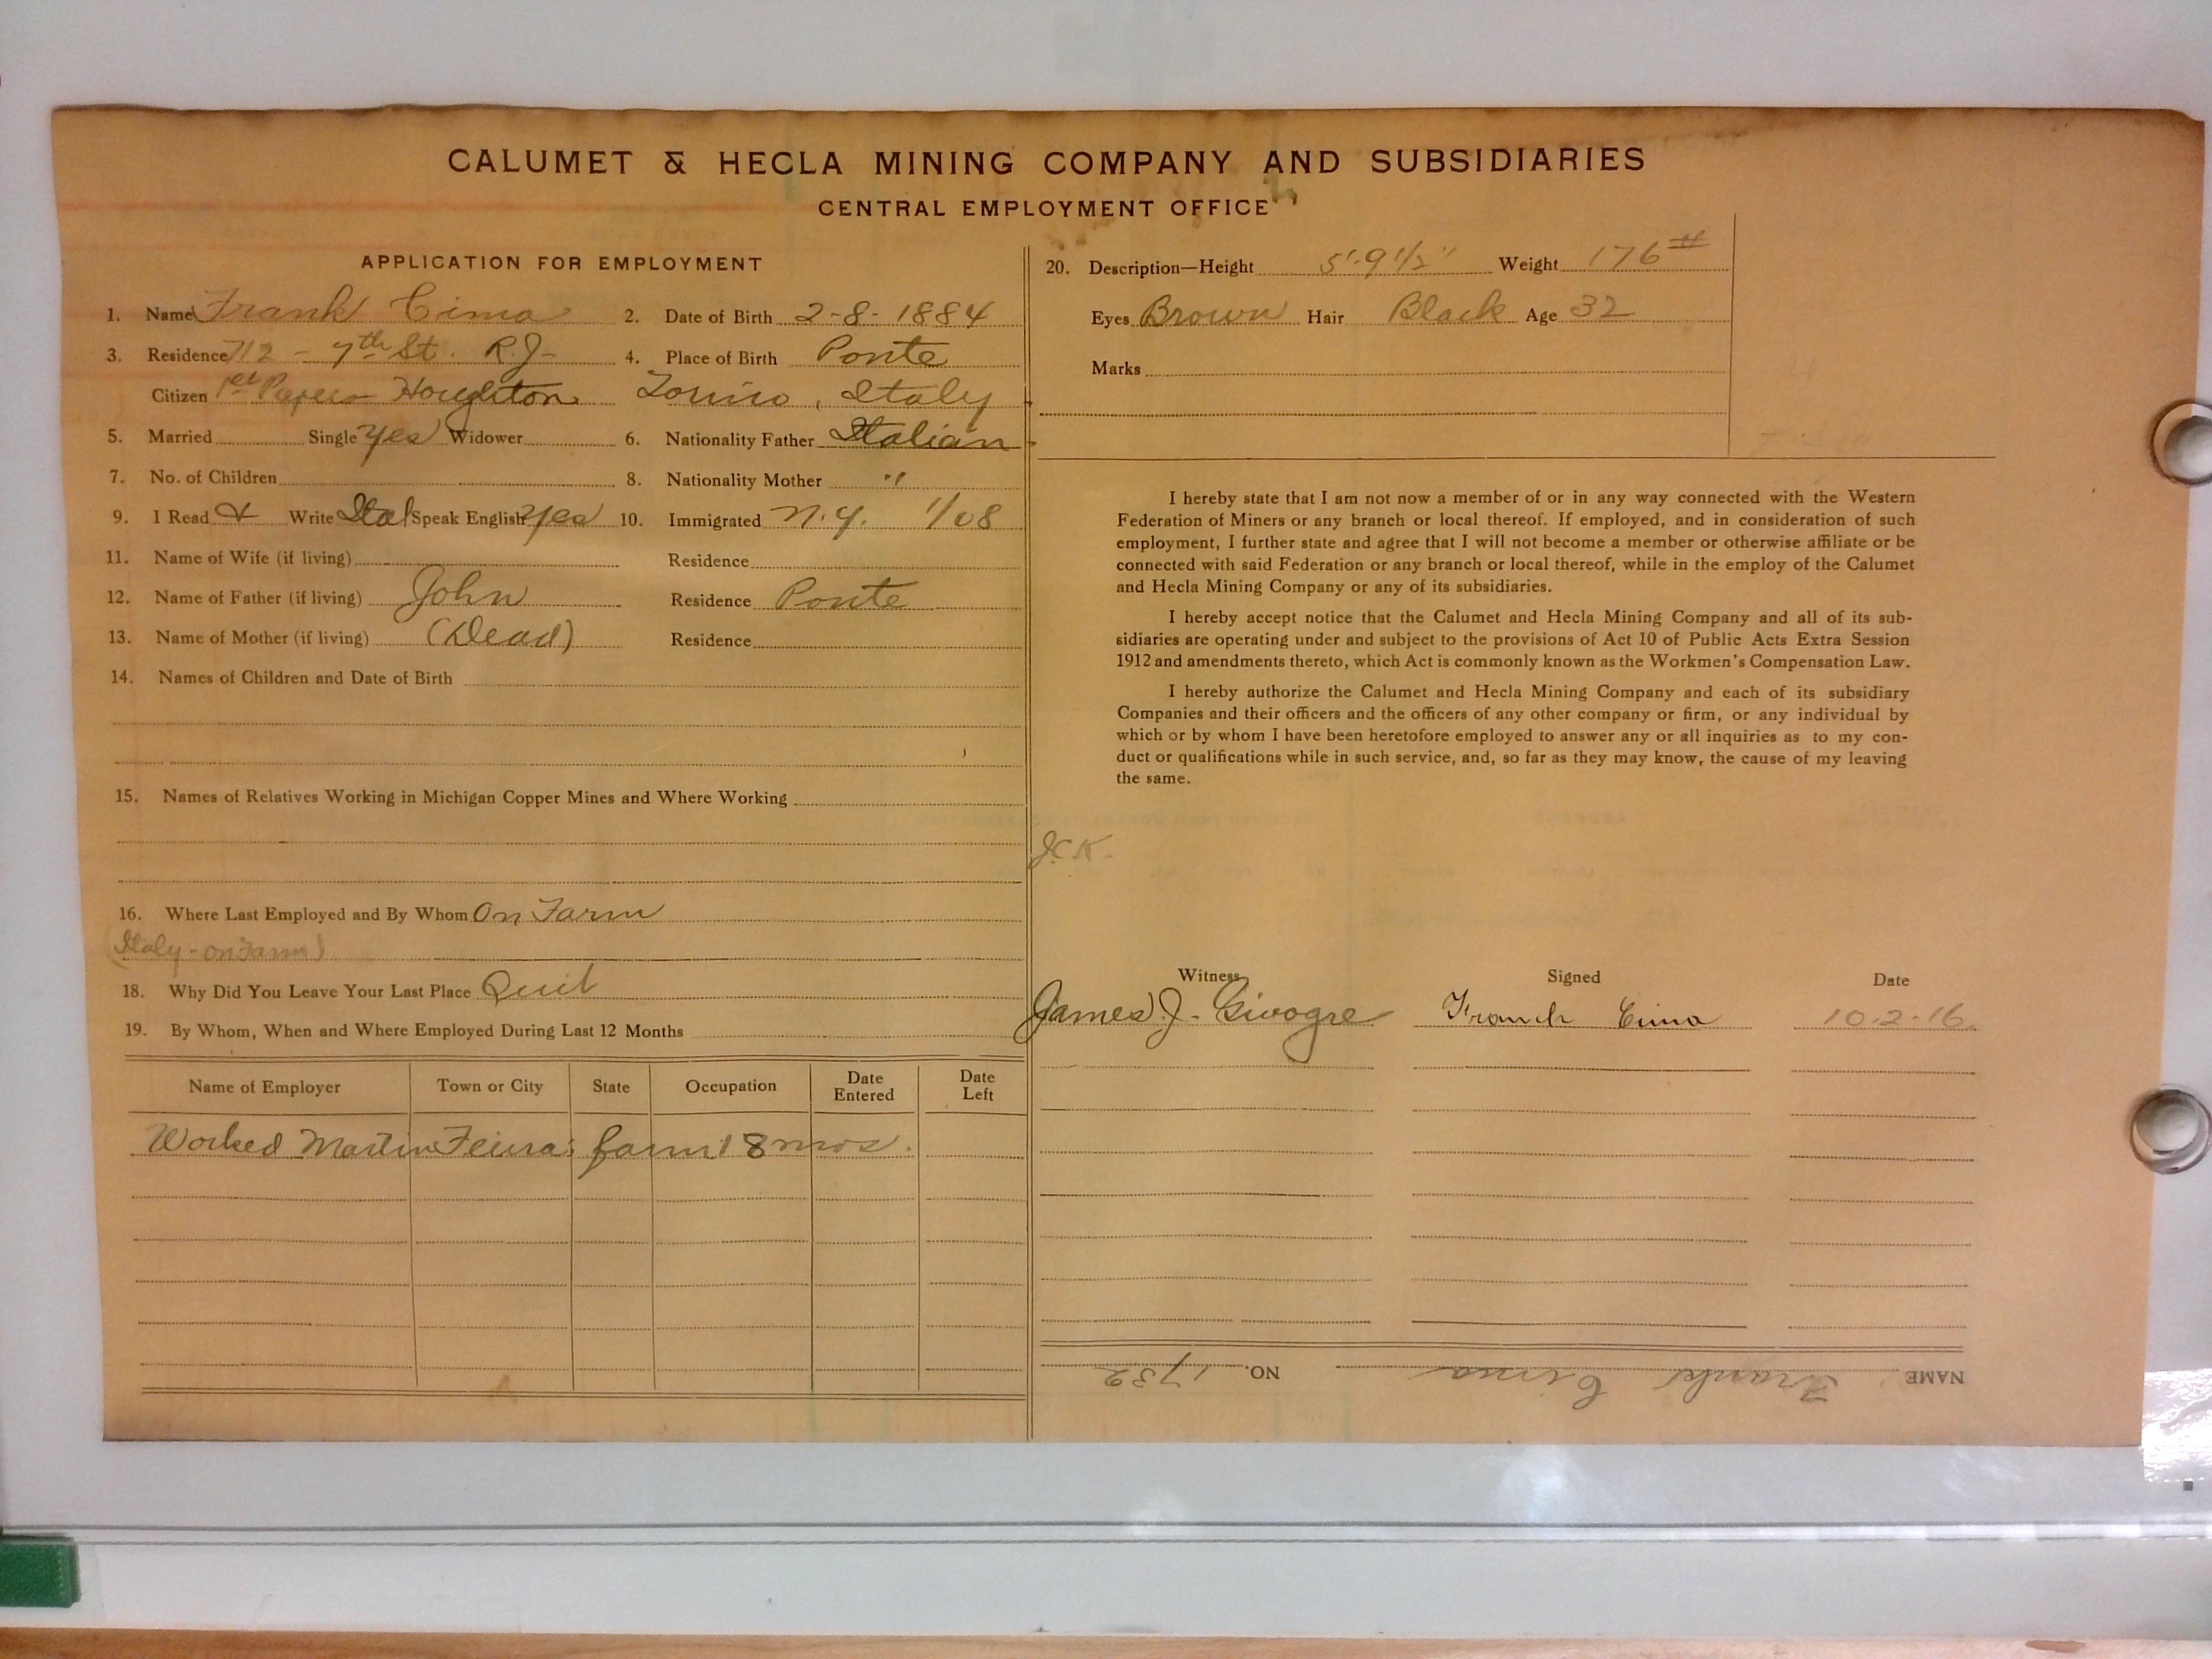 CALUMET & HECLA MINING COMPANY AND SUBSIDIARIES
CENTRAL EMPLOYMENT OFFICE
APPLICATION FOR EMPLOYMENT
1. Name Frank Cima 2. Date of Birth 2-8-1884
3. Residence 712 - 7th St. R.J. 4. Place of Birth Ponte
Citizen 1st Papers Houghton Torino, Italy
5. Married Single Yes Widower 6. Nationality Father Italian
7. No. of Children 8. Nationality Mother "
9. I Read & Write Ital Speak English Yes 10. Immigrated N.Y. 1/08
11. Name of Wife (if living) Residence
12. Name of Father (if living) John Residence Ponte
13. Name of Mother (if living) (Dead) Residence
14. Names of Children and Date of Birth
15. Names of Relatives Working in Michigan Copper Mines and Where Working
16. Where Last Employed and By Whom On Farm
(Italy - on Farm)
18. Why Did You Leave Your Last Place Quit
19. By Whom, When and Where Employed During Last 12 Months
Name of Employer Town or City State Occupation Date Entered Date Left
Worked Martin farm 18 mos.
20. Description—Height 5'-9 1/2" Weight 176#
Eyes Brown Hair Black Age 32
Marks
I hereby state that I am not now a member of or in any way connected with the Western
Federation of Miners or any branch or local thereof. If employed, and in consideration of such
employment, I further state and agree that I will not become a member or otherwise affiliate or be
connected with said Federation or any branch or local thereof, while in the employ of the Calumet
and Hecla Mining Company or any of its subsidiaries.
I hereby accept notice that the Calumet and Hecla Mining Company and all of its sub-
sidiaries are operating under and subject to the provisions of Act 10 of Public Acts Extra Session
1912 and amendments thereto, which Act is commonly known as the Workmen's Compensation Law.
I hereby authorize the Calumet and Hecla Mining Company and each of its subsidiary
Companies and their officers and the officers of any other company or firm, or any individual by
which or by whom I have been heretofore employed to answer any or all inquiries as to my con-
duct or qualifications while in such service, and, so far as they may know, the cause of my leaving
the same.
J.C.K.
Witness Signed Date
James J. Givogre Franck Cima 10-2-16
NAME Frank Cima NO. 1732